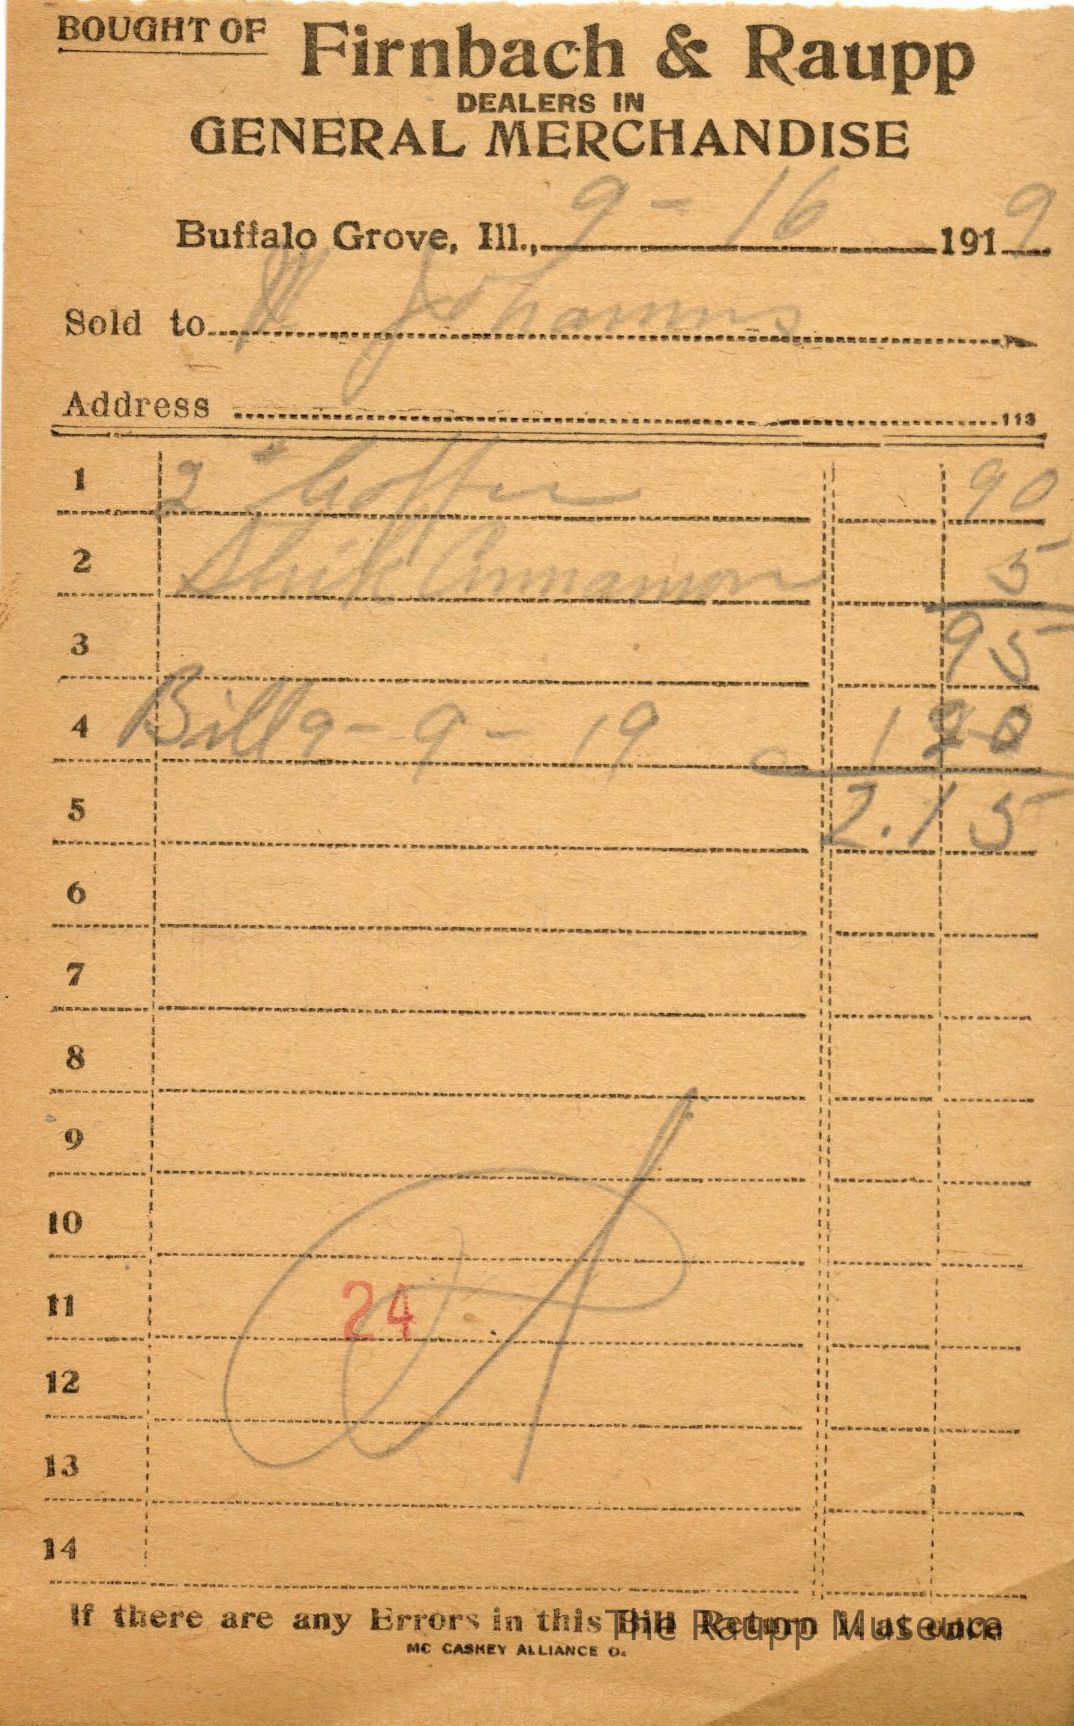 BOUGHT OF Firnbach & Raupp
DEALERS IN
GENERAL MERCHANDISE
Buffalo Grove, Ill., 9-16 1919
Sold to H Johannes
Address
113
1 2 # Coffee 90
2 Stick Cinnamon 5
3 95
4 Bill 9-9-19 1 20
5 2.15
6
7
8
9
10
11 24
12
13
14
If there are any Errors in this Bill Return it at once
The Raupp Museum
MC CASKEY ALLIANCE O.